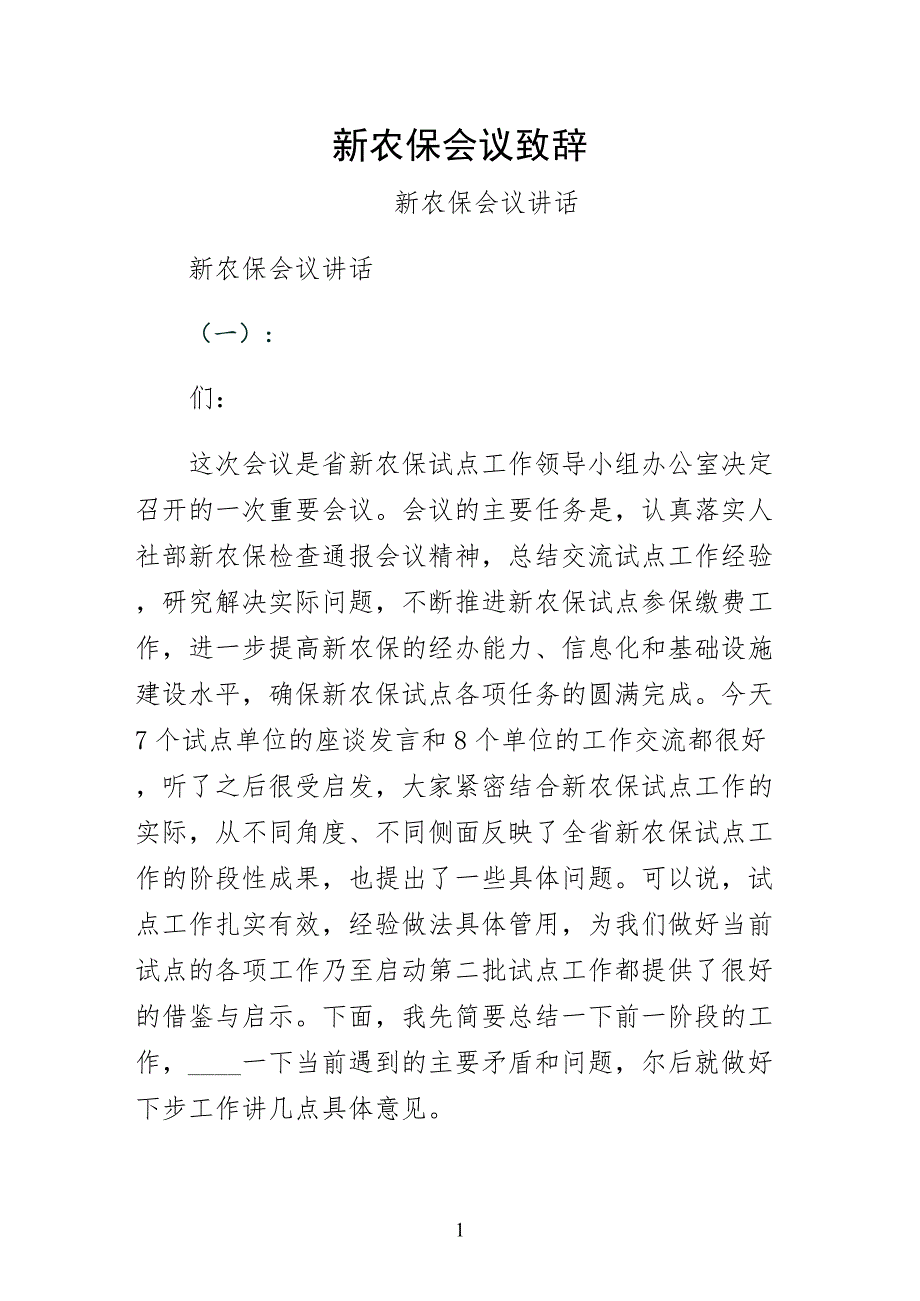 新农保会议致辞
新农保会议讲话
新农保会议讲话
（一）：
们：
这次会议是省新农保试点工作领导小组办公室决定
召开的一次重要会议。会议的主要任务是，认真落实人
社部新农保检查通报会议精神，总结交流试点工作经验
，研究解决实际问题，不断推进新农保试点参保缴费工
作，进一步提高新农保的经办能力、信息化和基础设施
建设水平，确保新农保试点各项任务的圆满完成。今天
7个试点单位的座谈发言和8个单位的工作交流都很好
，听了之后很受启发，大家紧密结合新农保试点工作的
实际，从不同角度、不同侧面反映了全省新农保试点工
作的阶段性成果，也提出了一些具体问题。可以说，试
点工作扎实有效，经验做法具体管用，为我们做好当前
试点的各项工作乃至启动第二批试点工作都提供了很好
的借鉴与启示。下面，我先简要总结一下前一阶段的工
作，____一下当前遇到的主要矛盾和问题，尔后就做好
下步工作讲几点具体意见。
1